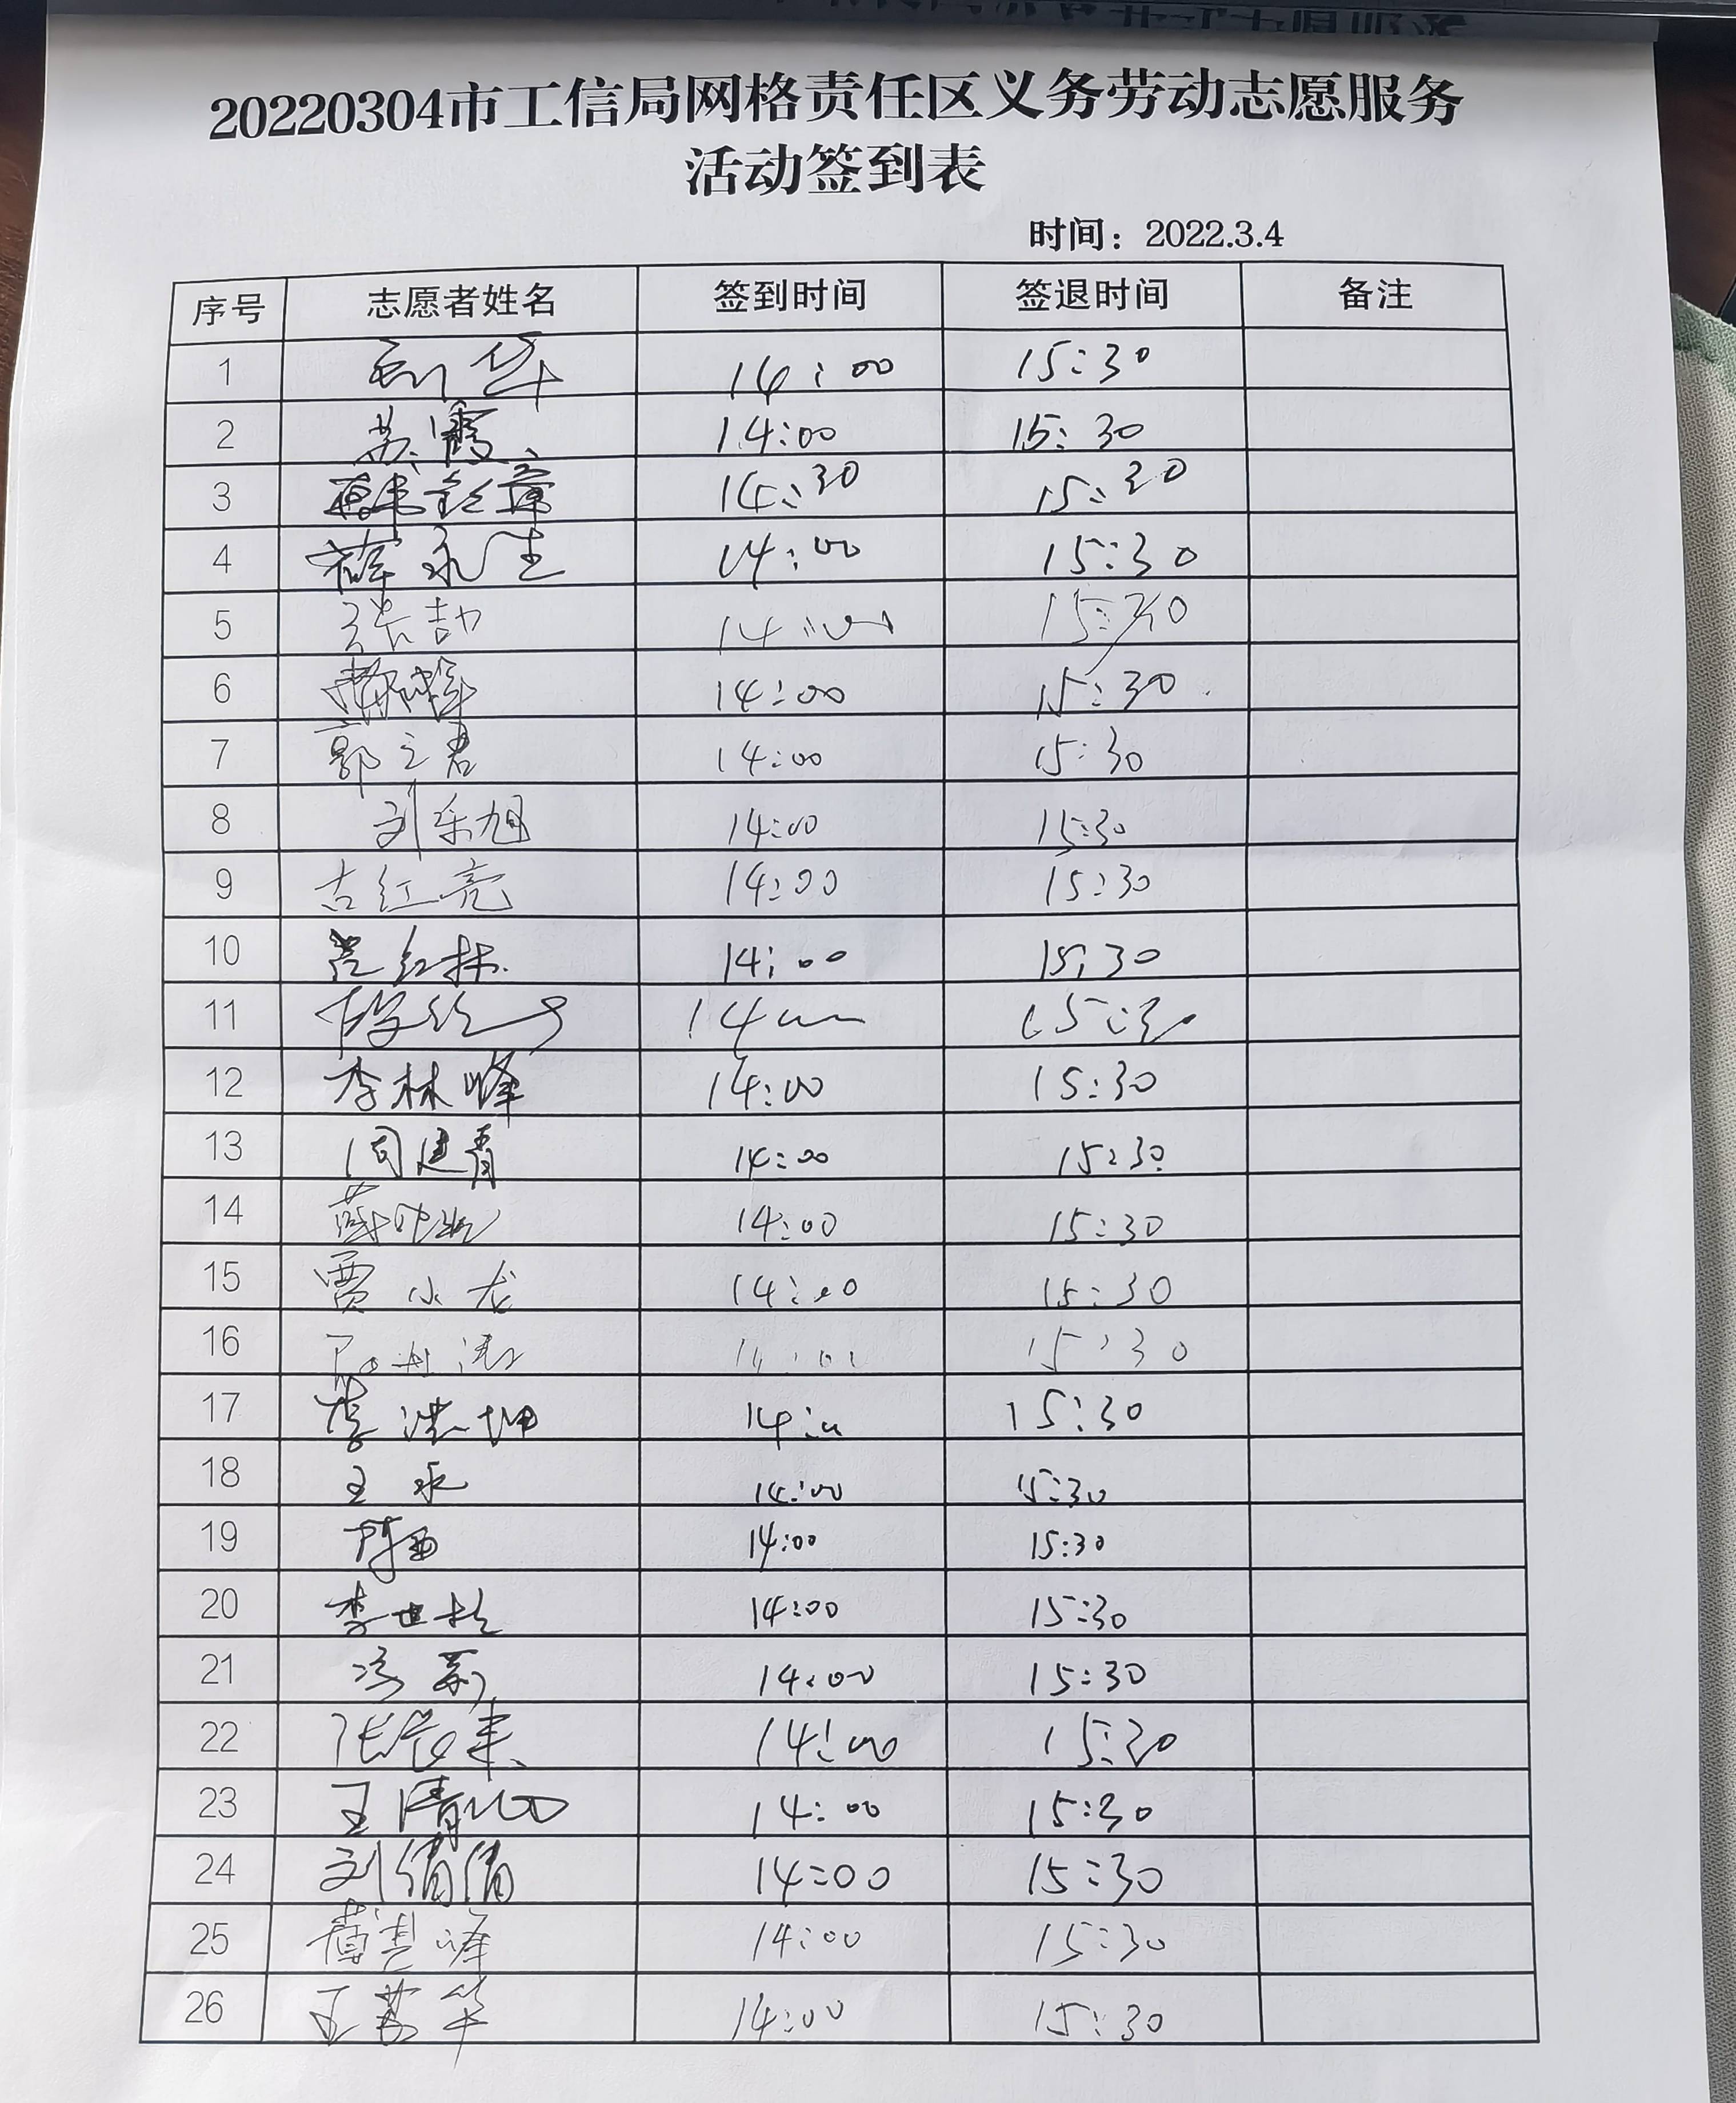 20220304市工信局网格责任区义务劳动志愿服务
活动签到表
时间：2022.3.4
序号 志愿者姓名 签到时间 签退时间 备注
1 14:00 15:30
2 苏霞 14:00 15:30
3 14:30 15:30
4 薛永生 14:00 15:30
5 张喆 14:00 15:30
6 14:00 15:30
7 郭文君 14:00 15:30
8 刘乐旭 14:00 15:30
9 古红亮 14:00 15:30
10 14:00 15:30
11 15:30
12 李林峰 14:00 15:30
13 周建青 14:00 15:30
14 14:00 15:30
15 贾小龙 14:00 15:30
16 15:30
17 李洪坤 15:30
18 王永 14:00 15:30
19 14:00 15:30
20 李世松 14:00 15:30
21 冯莉 14:00 15:30
22 14:00 15:30
23 王清 14:00 15:30
24 刘倩倩 14:00 15:30
25 14:00 15:30
26 14:00 15:30